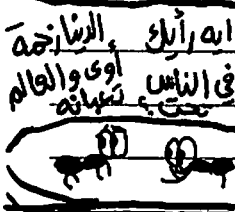 ايه رأيك الدنيا زحمة
في الناس أوى والعالم
تحت تعبانه